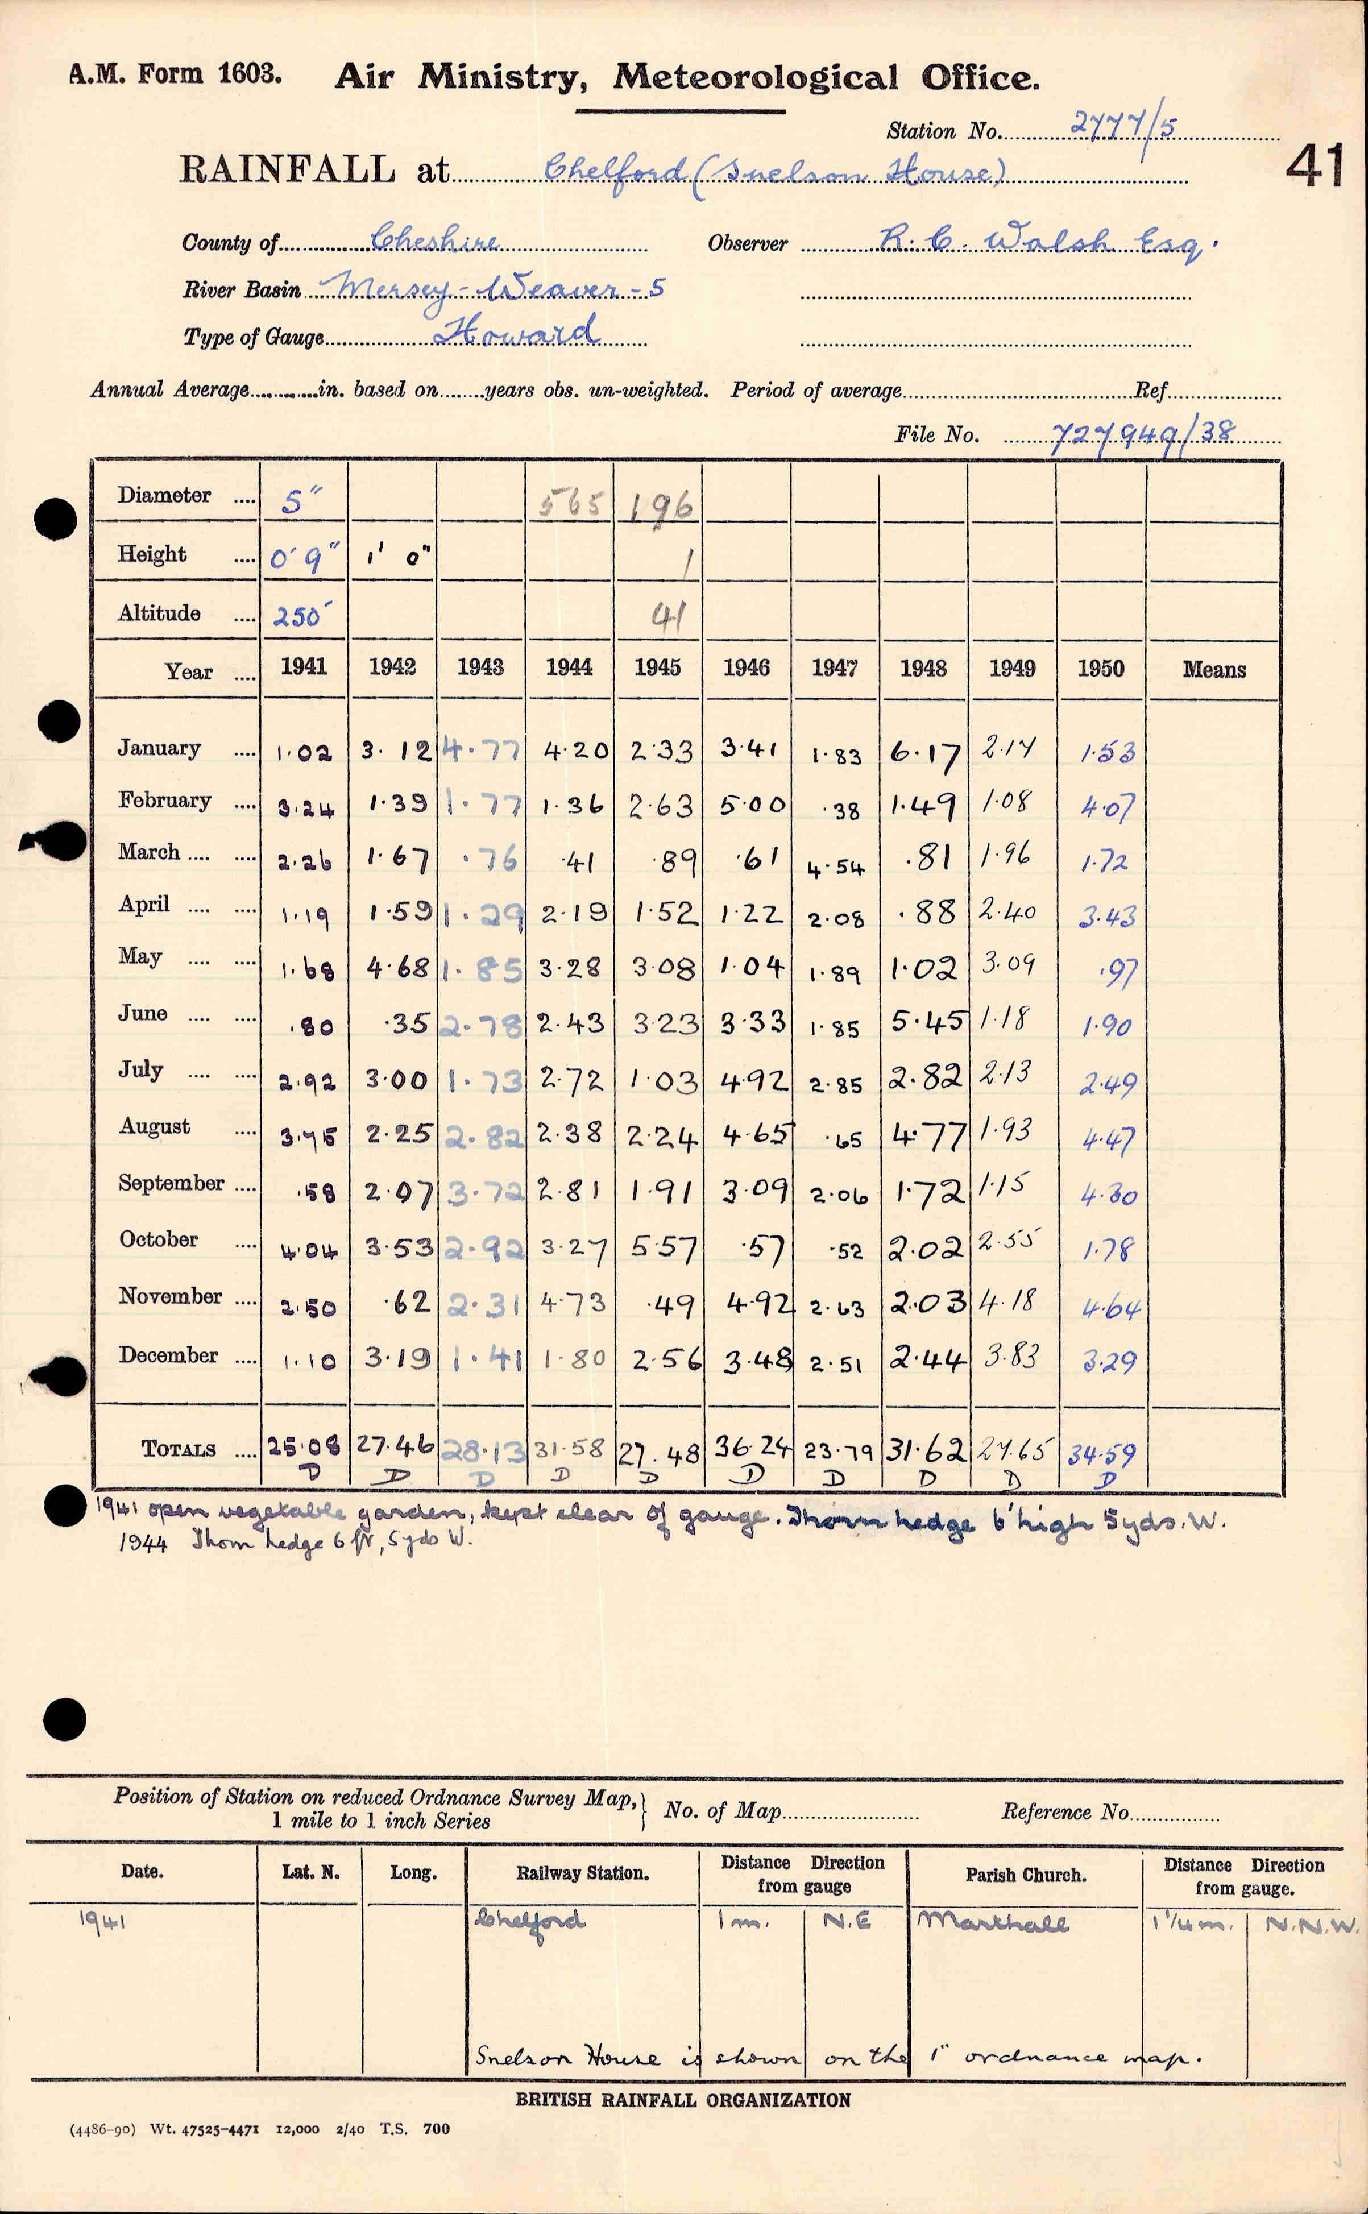 A.M. Form 1603. Air Ministry, Meteorological Office.
Station No. 2777/5
41
RAINFALL at Chelford (Snelson House)
County of Cheshire Observer R. C. Walsh Esq.
River Basin Mersey - Weaver - 5
Type of Gauge Howard
Annual Average in. based on years obs. un-weighted. Period of average Ref
File No. 727949/38
Diameter 5" 565 196
Height 0' 9" 1' 0" 1
Altitude 250' 41
Year 1941 1942 1943 1944 1945 1946 1947 1948 1949 1950 Means
January 1.02 3.12 4.77 4.20 2.33 3.41 1.83 6.17 2.17 1.53
February 3.24 1.39 1.77 1.36 2.63 5.00 .38 1.49 1.08 4.07
March 2.26 1.67 .76 .41 .89 .61 4.54 .81 1.96 1.72
April 1.19 1.59 1.29 2.19 1.52 1.22 2.08 .88 2.40 3.43
May 1.68 4.68 1.85 3.28 3.08 1.04 1.89 1.02 3.09 .97
June .80 .35 2.78 2.43 3.23 3.33 1.85 5.45 1.18 1.90
July 2.92 3.00 1.73 2.72 1.03 4.92 2.85 2.82 2.13 2.49
August 3.75 2.25 2.82 2.38 2.24 4.65 .65 4.77 1.93 4.47
September .58 2.07 3.72 2.81 1.91 3.09 2.06 1.72 1.15 4.30
October 4.04 3.53 2.92 3.27 5.57 .57 .52 2.02 2.55 1.78
November 2.50 .62 2.31 4.73 .49 4.92 2.63 2.03 4.18 4.64
December 1.10 3.19 1.41 1.80 2.56 3.48 2.51 2.44 3.83 3.29
TOTALS 25.08 27.46 28.13 31.58 27.48 36.24 23.79 31.62 27.65 34.59
D D D D D D D D D D
1941 open vegetable garden, kept clear of gauge. Thorn hedge 6' high 5 yds. W.
1944 Thorn hedge 6 ft, 5 yds W.
Position of Station on reduced Ordnance Survey Map, No. of Map Reference No.
1 mile to 1 inch Series
Date. Lat. N. Long. Railway Station. Distance Direction from gauge Parish Church. Distance Direction from gauge.
1941 Chelford 1 m. N.E Marthall 1 1/4 m. N.N.W.
Snelson House is shown on the 1" ordnance map.
BRITISH RAINFALL ORGANIZATION
(4486-90) Wt. 47525-4471 12,000 2/40 T.S. 700